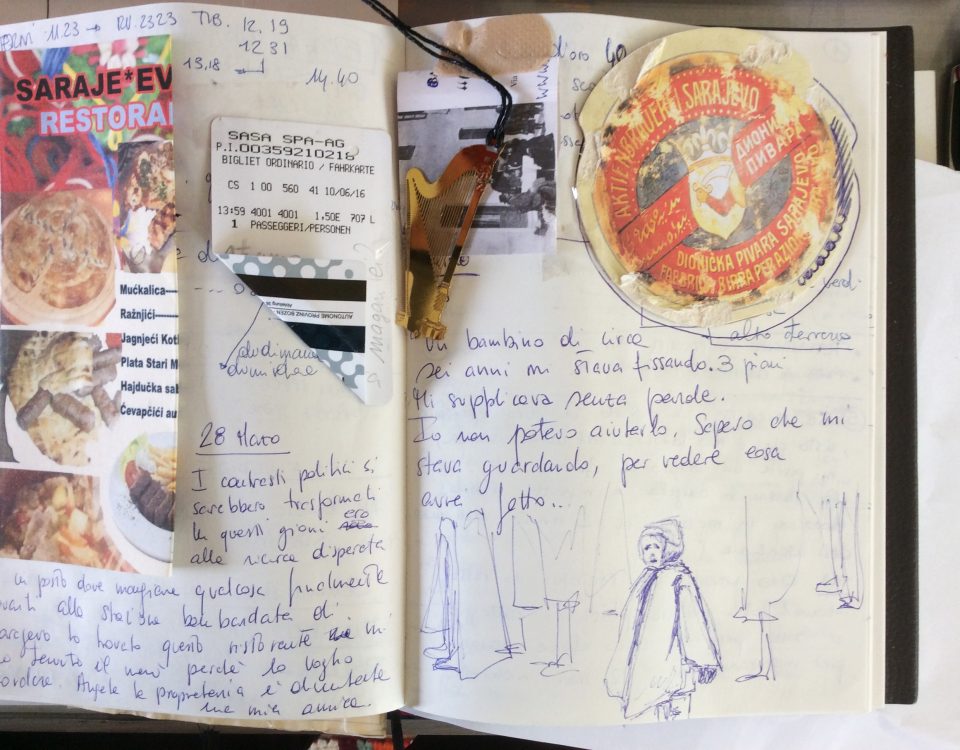 11.23 → RV. 2323
TIB. 12.19
12 31
13,18
14.40
SARAJE*EV
RESTORA
Mućkalica
Ražnjići
Jagnjeći Kotl
Plata Stari M
Hajdučka sa
Ćevapčići au
SASA SPA-AG
P.I.00359210218
BIGLIET ORDINARIO / FAHRKARTE
CS 1 00 560 41 10/06/16
13:59 4001 4001 1,50E 707 L
1 PASSEGGERI/PERSONEN
AUTONOME PROVINZ BOZEN
Abteilung 38
28 Marzo
I contrasti politici si
sarebbero trasformati
In questi giorni ero
alla ricerca disperata
un posto dove mangiare qualcosa finalmente
davanti alla stazione bombardata di
Sarajevo ho trovato questo ristorante mi
tenuto il menù perchè lo voglio
ricordare. Angela la proprietaria è diventata
una mia amica.
d'oro 40
www
Via
AKTIENBRAUEREI SARAJEVO
ДИОНИ
ПИВАРА
DIONIČKA PIVARA SARAJEVO
FABBRICA BIRRA PER AZIONI
verdi
alto terreno
Un bambino di circa
sei anni mi stava fissando. 3 piani
Mi supplicava senza parole.
Io non potevo aiutarlo. Sapevo che mi
stava guardando, per vedere cosa
avrei fatto...